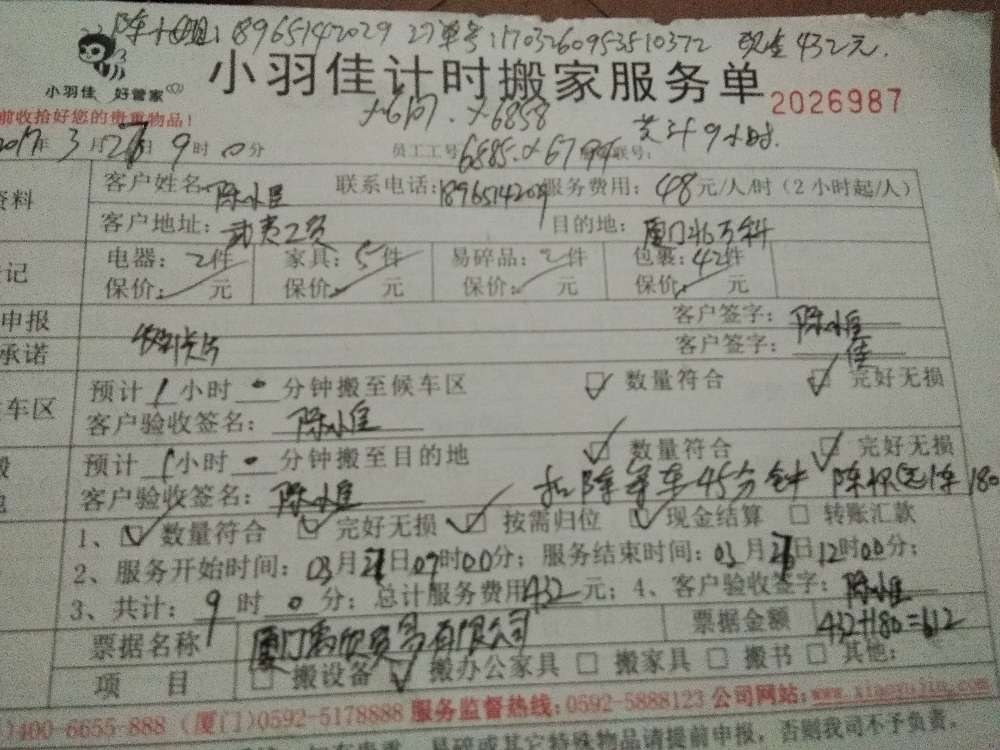 陈小姐:18965142029 订单号:1703260953510372 现金432元.
小羽佳 好管家
小羽佳计时搬家服务单
2026987
前收拾好您的贵重物品!
×6107. ×6858
共计9小时.
2017年3月27日9时0分 员工工号 6585.×6794 联号:
资料
客户姓名:陈小佳 联系电话:1896514209 服务费用:48元/人/时(2小时起/人)
客户地址:武夷工贸 目的地:厦门北万科
记
电器:2件 家具:5件 易碎品:2件 包裹:42件
保价: 元 保价: 元 保价: 元 保价: 元
申报
客户签字:陈小佳
承诺
客户签字:佳
车区
预计1小时0分钟搬至候车区 数量符合 完好无损
客户验收签名:陈小佳
搬
地
预计1小时0分钟搬至目的地 数量符合 完好无损
客户验收签名:陈小佳 扣除等车45分钟
1、数量符合 完好无损 按需归位 现金结算 转账汇款
2、服务开始时间:03月27日09时00分;服务结束时间:03月27日12时00分;
3、共计:9时0分;总计服务费用432元;4、客户验收签字:陈小佳
票据名称 厦门禹欣贸易有限公司 票据金额 432+180=612
项 目 搬设备 搬办公家具 搬家具 搬书 其他:
)400-6655-888 (厦门)0592-5178888 服务监督热线:0592-5888123 公司网站:www.xiaoyujia.com
易碎或其它特殊物品请提前申报,否则我司不予负责。